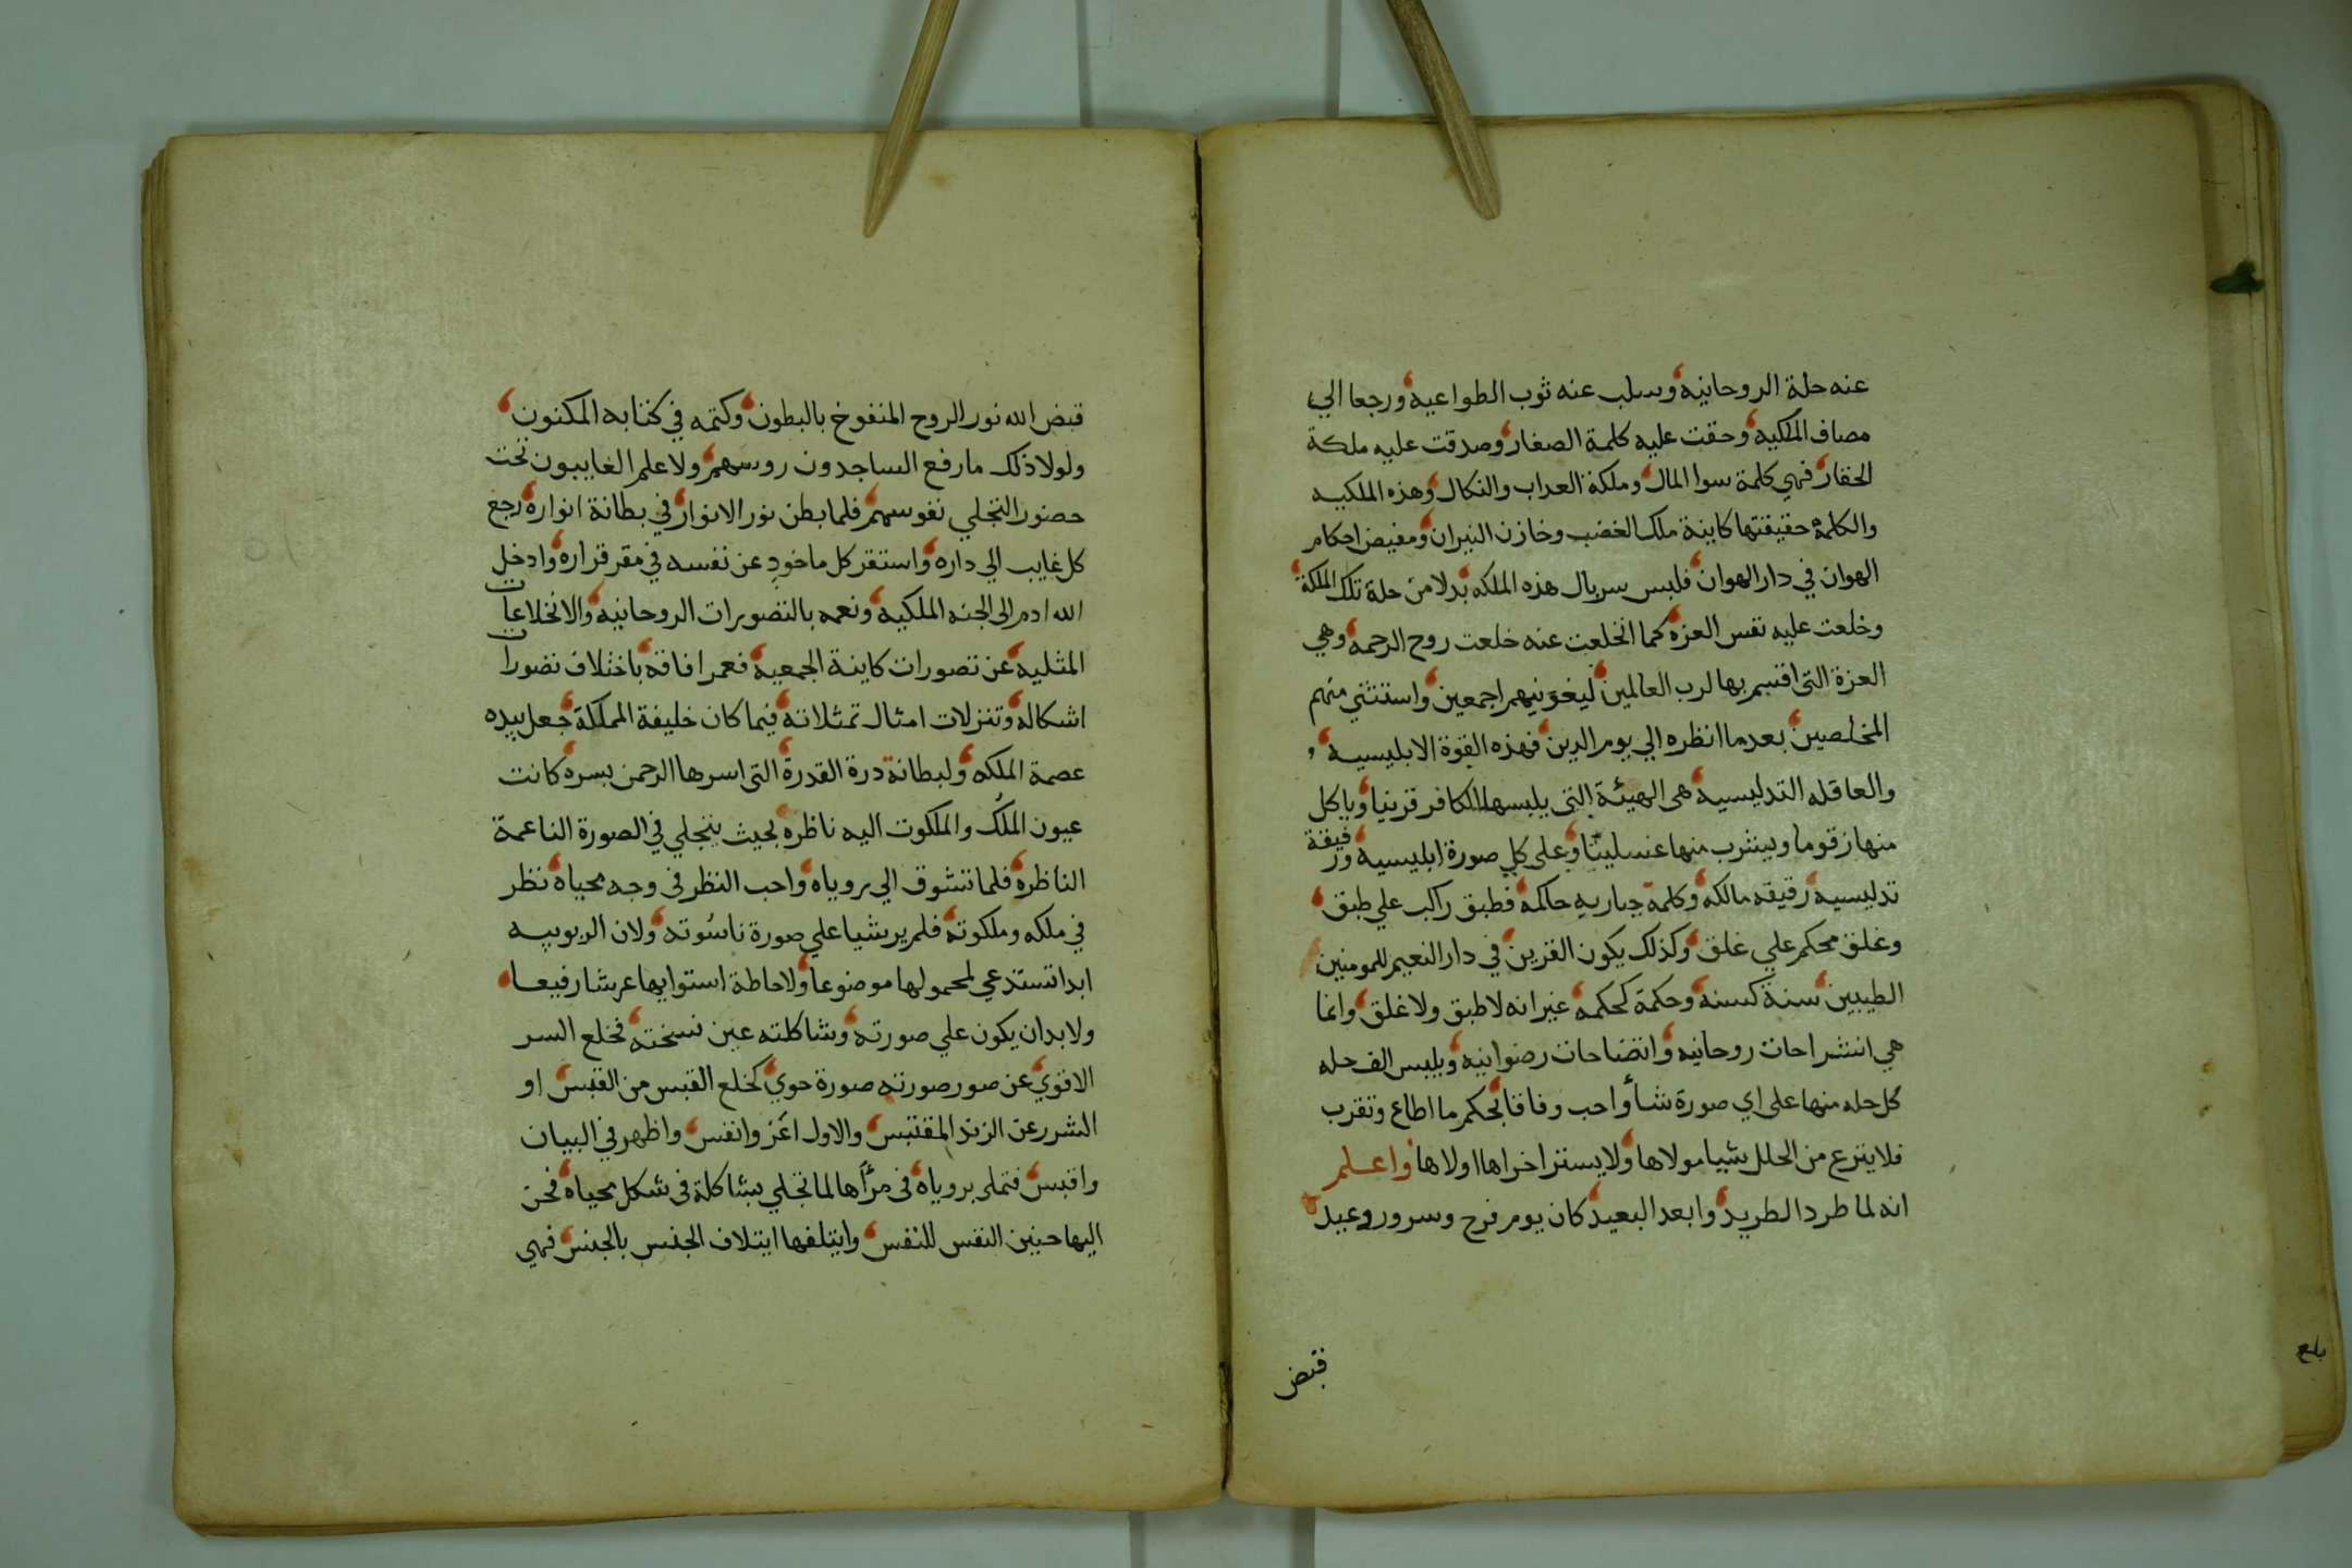 عنه حلة الروحانيه وسلب عنه ثوب الطواعيه ورجعا الي
مصاف الملكيه وحقت عليه كلمة الصغار وصدقت عليه ملكة
الحقار فهي كلمة سوا المال وملكة العداب والنكال وهذه الملكيه
والكلمة حقيقتها كاينة ملك الغضب وخازن النيران ومفيض احكام
الهوان في دار الهوان فلبس سربال هذه الملكه بدلا من حلة تلك الملكة
وخلعت عليه نفس العزه كما انخلعت عنه خلعت روح الرحمه وهي
العزة التى اقتسم بها لرب العالمين ليغوينهم اجمعين واستثني منهم
المخلصين بعد ما انظره الي يوم الدين فهذه القوة الابليسيه
والعاقله التدليسيه هى الهيئة التى يلبسها الكافر قرينا وياكل
منها زقوما ويشرب منها غسلينا وعلى كل صورة ابليسيه ورقيقة
تدليسيه رقيقه مالكه وكلمة جباريه حاكمه فطبق راكب علي طبق
وغلق محكم علي غلق وكذلك يكون القرين في دار النعيم للمومنين
الطيبين سنة كسنه وحكمة كحكمه غير انه لا طبق ولا غلق وانما
هي انشراحات روحانيه واتضاحات رضوانيه ويلبس الف حله
كل حله منها على اي صورة شأ واحب وفاقا بحكم ما اطاع وتقرب
فلا ينزع من الحلل شيا مولاها ولا يستنر اخراها اولاها واعلم
انه لما طرد الطريد وابعد البعيد كان يوم فرح وسرور وعيد
قبض
بلغ
قبض الله نور الروح المنفوخ بالبطون وكتمه في كتابه المكنون
ولولا ذلك ما رفع الساجدون روسهم ولا علم الغايبون تحت
حضور التجلي نفوسهم فلما بطن نور الانوار في بطانة انواره رجع
كل غايب الي داره واستقر كل ماخود عن نفسه في مقر قراره وادخل
الله ادم الى الجنه الملكيه ونعمه بالتصورات الروحانيه والانخلاعات
المثليه عن تصورات كاينة الجمعيه فعمر افاقه باختلاف تصورات
اشكاله وتنزلات امثال تمثلاته فيما كان خليفة المملكة جعل بيده
عصمة الملكه ولبطانة درة القدرة التى اسرها الرحمن بسره كانت
عيون الملك والملكوت اليه ناظره بحيث يتجلي في الصورة الناعمة
الناظره فلما تشوق الي روياه واحب النظر فى وجه محياه نظر
في ملكه وملكوته فلم ير شيا علي صورة ناسوته ولان الربوبيه
ابدا تستدعي لمحمولها موضوعا ولاحاطة استوايها عرشا رفيعا
ولا بد ان يكون علي صورته وشاكلته عين نسخته فخلع السر
الاقوي عن صور صورته صورة حوي كخلع القبس من القبس او
الشرر عن الزند المقتبس والاول اعز وانفس واظهر في البيان
واقبس فتملى بروياه فى مرأها لما تجلي بشاكلة فى شكل محياه فحن
اليها حنين النفس للنفس وايتلفها ايتلاف الجنس بالجنس فهي